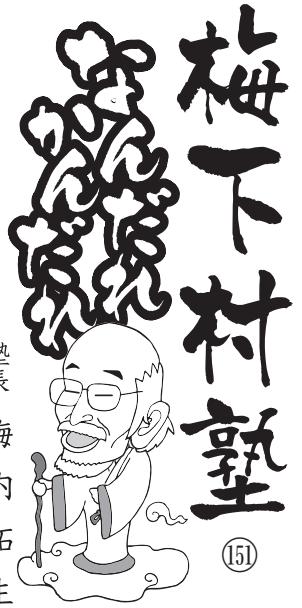 梅下村塾
(151)
なんだれ
かんだれ
塾長 梅内拓生